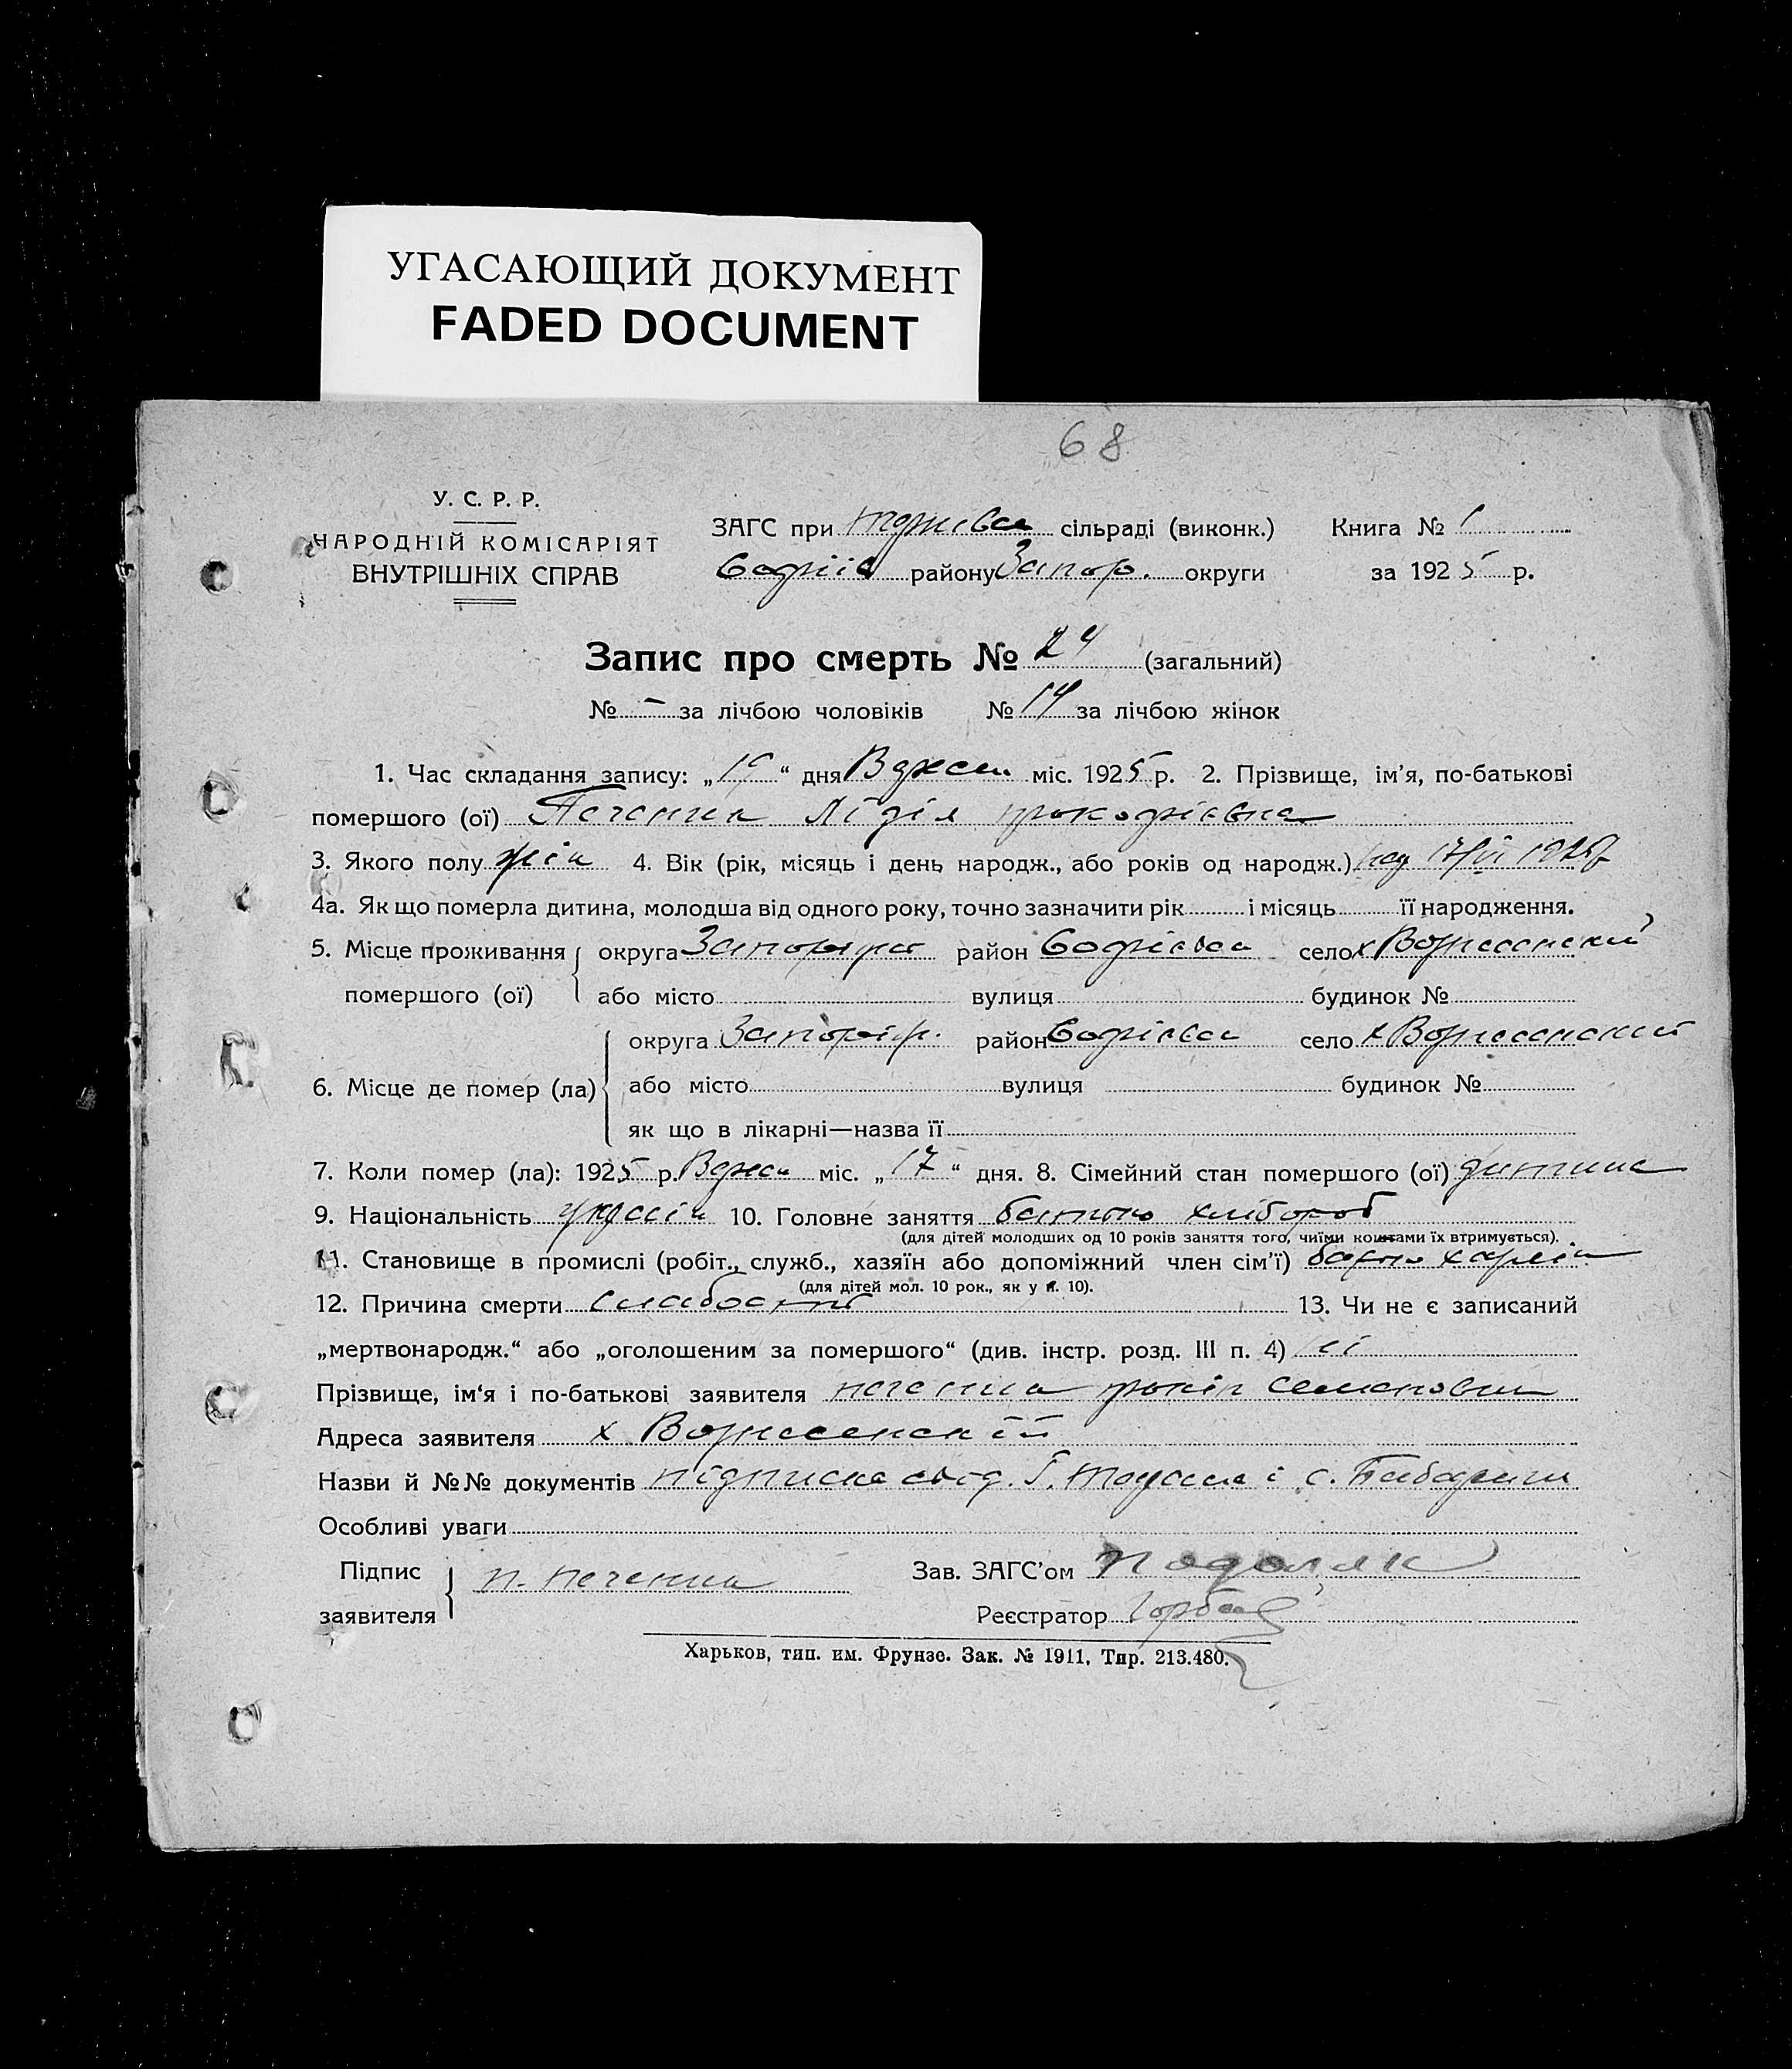 УГАСАЮЩИЙ ДОКУМЕНТ
FADED DOCUMENT
68
У. С. Р. Р.
НАРОДНІЙ КОМІСАРІЯТ
ВНУТРІШНІХ СПРАВ
ЗАГС при сільраді (виконк.)
району Запор. округи
Книга № 1
за 1925 р.
Запис про смерть № 24 (загальний)
№ - за лічбою чоловіків № 14 за лічбою жінок
1. Час складання запису: „ “ дня міс. 1925 р. 2. Прізвище, ім’я, по-батькові
помершого (ої) Печенна Лідія
3. Якого полу жін 4. Вік (рік, місяць і день народж., або років од народж.)
4а. Як що померла дитина, молодша від одного року, точно зазначити рік і місяць її народження.
5. Місце проживання помершого (ої) округа район Софієвса село х Вознесенский
або місто вулиця будинок №
6. Місце де помер (ла) округа район Софієвса село х Вознесенский
або місто вулиця будинок №
як що в лікарні—назва її
7. Коли помер (ла): 1925 р. міс. „17“ дня. 8. Сімейний стан помершого (ої) дитина
9. Національність 10. Головне заняття батько хлібороб
(для дітей молодших од 10 років заняття того, чиїми коштами їх втримується).
11. Становище в промислі (робіт., служб., хазяїн або допоміжний член сім’ї)
(для дітей мол. 10 рок., як у п. 10).
12. Причина смерти слабость 13. Чи не є записаний
„мертвонароdж.“ або „оголошеним за помершого“ (див. інстр. розд. III п. 4) ні
Прізвище, ім‘я і по-батькові заявителя печенна семенович
Адреса заявителя х Вознесенскій
Назви й №№ документів підписка
Особливі уваги
Підпис заявителя п. печенна
Зав. ЗАГС’ом Подоляк
Реєстратор
Харьков, тип. им. Фрунзе. Зак. № 1911. Тир. 213.480.